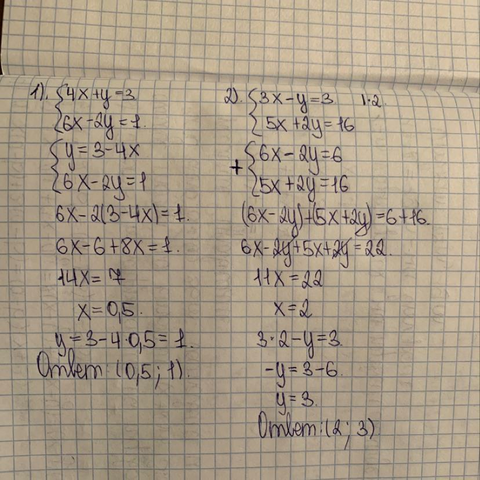 1). { 4x+y=3
{ 6x-2y=1.
{ y=3-4x
{ 6x-2y=1
6x-2(3-4x)=1.
6x-6+8x=1.
14x=7
x=0,5.
y=3-4·0,5=1.
Ответ: (0,5; 1).
2). { 3x-y=3 |·2
{ 5x+2y=16
+ { 6x-2y=6
{ 5x+2y=16
(6x-2y)+(5x+2y)=6+16.
6x-2y+5x+2y=22.
11x=22
x=2
3·2-y=3.
-y=3-6.
y=3.
Ответ: (2; 3)